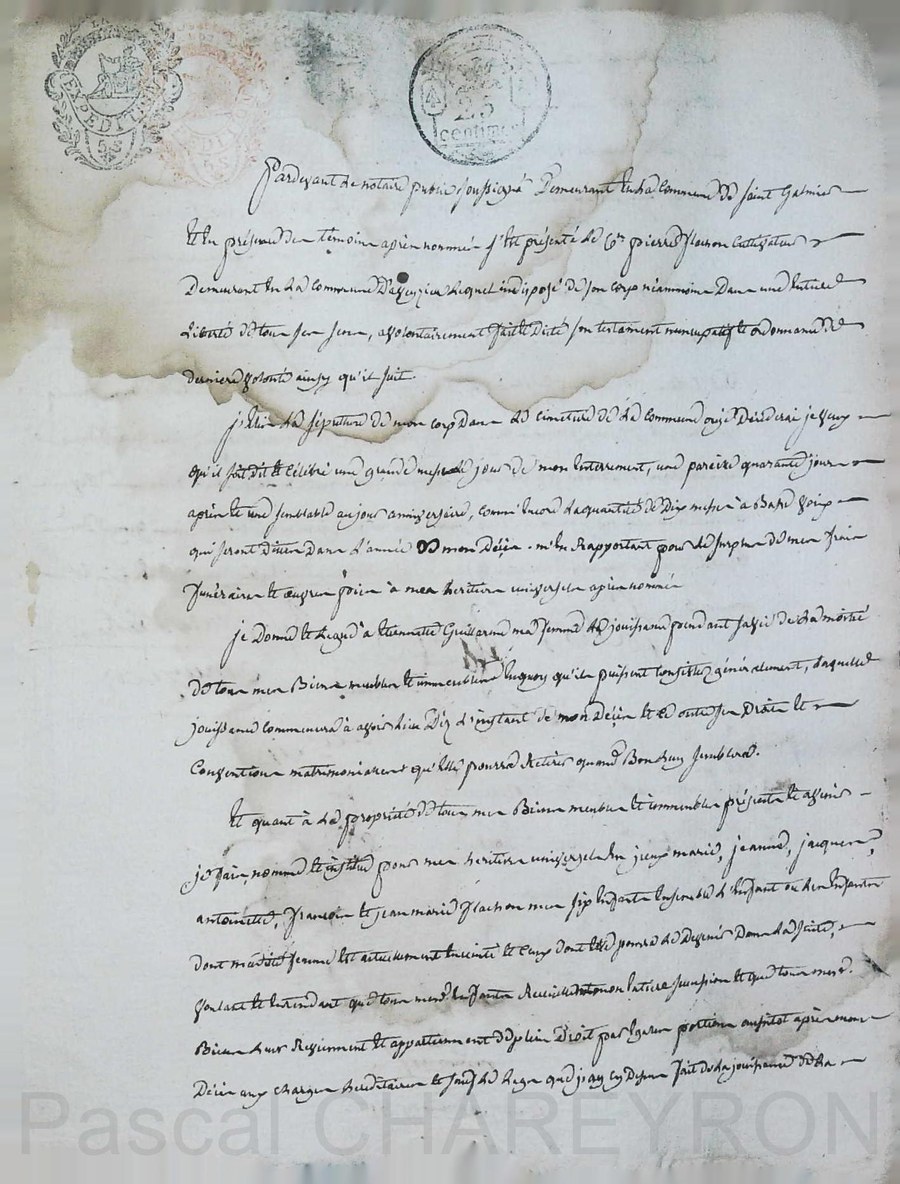 EXPEDITION
5 S
25
centimes
Pardevant Le notaire public soussigné Demeurant En La Commune de Saint Galmier
Et En présence des témoins après nommés s'est présenté Le Cen pierre flachon Cultivateur
Demeurant En La Commune D'aveyzieu Lequel indisposé de son corp néammoins Dans une Entiere
Liberté de tous ses sens, a volontairement fait et Dicté son testament nuncupatif et ordonnance de
derniere volonté ainsy qu'il suit.
j'Elis La sépulture de mon corp Dans Le cimetiere de La commune où je Décéderai je veux
qu'il soit dit et Célébré une grande messe Le jour de mon Enterrement, une pareille quarante jours
après et une semblable au jour anniversaire, comm'Encore La quantité de Dix messes à Basse voix
qui seront Dites Dans L'année de mon Décès. m'En Rapportant pour Le surplus de mes frais
funéraires et œuvres pies à mes heritiers universels après nommés
je Donne et Legue à Etiennette Guillarme ma femme La jouissance pendant sa vie de La moitié
de tous mes Biens meubles et immeubles En quoy qu'ils puissent Consister généralement, Laquelle
jouissance commencera à avoir Lieu Dès L'instant de mon Décès et ce outre ses Droits et
Conventions matrimoniaux qu'Elle pourra Retirer quand Bon Luy semblera.
Et quant à La propriété de tous mes Biens meubles et immeubles présents et avenir
je fais, nomme et institue pour mes heritiers universels En jceux marie, jeanne, jacques,
antoinette, françois et jean marie flachon mes six Enfants Ensemble L'Enfant ou Les Enfants
dont madite femme Est actuellement Enceinte et Ceux dont Elle pourra Le Devenir Dans La suite,
voulant et Entendant que tous mesd. Enfants Recueillent mon Entiere succession et que tous mesd.
Biens Leur Reviennent et appartiennent de plein Droit par Egales portions aussitôt après mon
Décès aux charges héréditaires et sauf Le Legs que j'ay cy Dessus fait de La jouissance de La
Pascal CHAREYRON